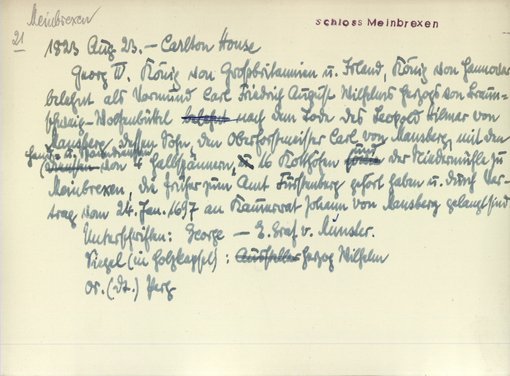 Meinbrexen
schloss Meinbrexen
21
1823 Aug 23. – Carlton House
Georg IV. König von Großbritannien u. Irland, König von Hannover
belehnt als Vormund Carl Friedrich August Wilhelms Herzogs von Braun-
schweig-Wolfenbüttel belehnt nach dem Tode des Leopold Hilmar von
Mansberg dessen Sohn, den Oberforstmeister Carl von Mansberg mit den
Hand- u. 
Diensten von 4 Halbspännern, 16 Kothöfen und der Niedermühle zu
Meinbrexen, die früher zum Amt Fürstenberg gehört haben u. durch Ver-
trag vom 24. Jan. 1697 an Kammerrat Johann von Mansberg gelangt sind
Unterschriften: George – E. Graf v. Münster.
Siegel (in Holzkapsel): Aussteller Herzog Wilhelm
Or. (dt.) Perg.